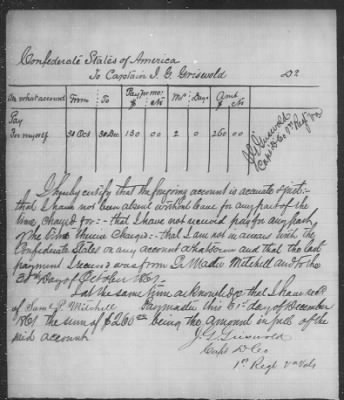 Confederate States of America
To Captain J. G. Griswold Dr
On what account From To Pay for mo: Mos Days Amt
$ cts $ cts
Pay
For myself 31 Oct 31 Dec 130 00 2 0 260 00
J G Griswold
Capt D Co 1st Regt Va
I hereby certify that the foregoing account is accurate & just:-
that I have not been absent without leave for any part of the
time charged for:- that I have not received pay for any part
of the time therein charged:- that I am not in arrears with the
Confederate States on any account whatsoever and that the last
payment I received was from Pr Master Mitchell and to the
31st Day of October 1861.
I at the same time acknowledge that I have recd
of Saml P. Mitchell Paymaster this 31st day of December
1861 the sum of $260 00 being the amount in full of the
said account
J. G. Griswold
Capt D Co
1st Regt Va Vols